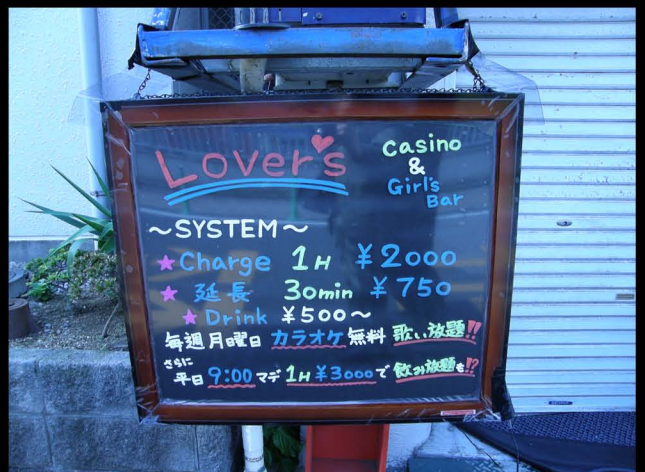 Lover's
casino
&
Girl's
Bar
～SYSTEM～
★Charge 1H ¥2000
★延長 30min ¥750
★Drink ¥500～
毎週月曜日 カラオケ無料 歌い放題!!
さらに
平日9:00マデ1H¥3000で飲み放題も!?